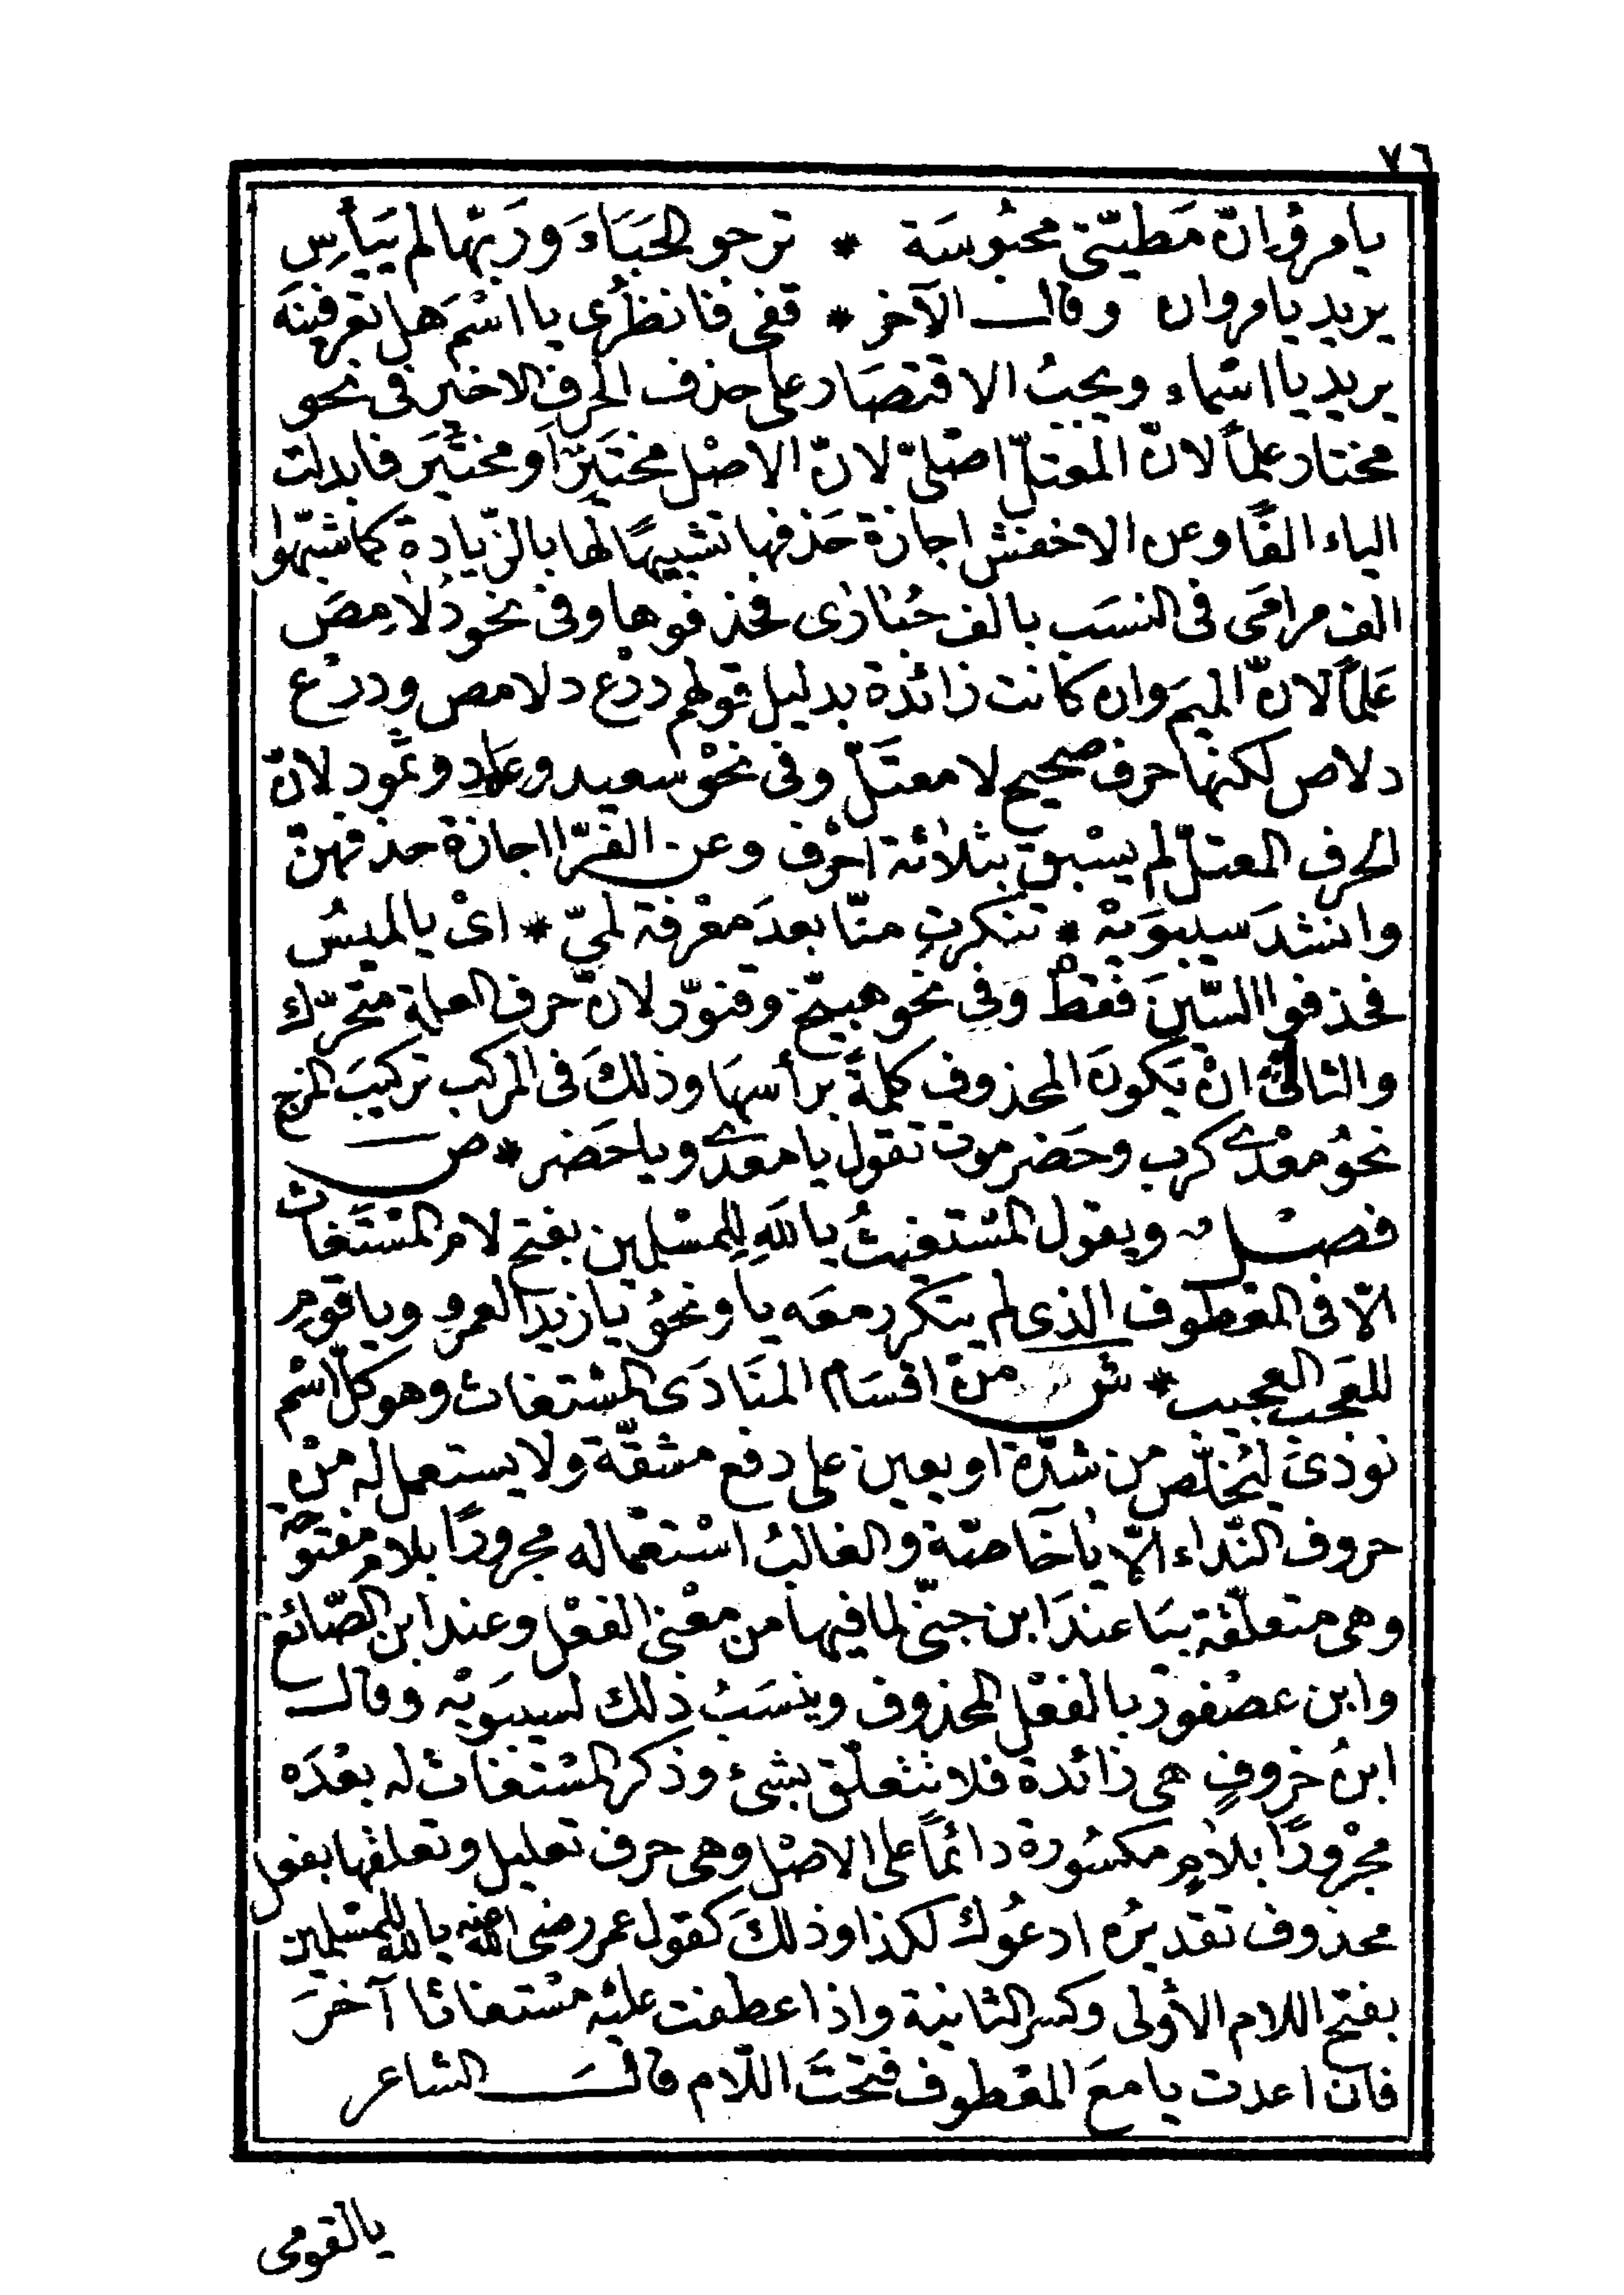 ٧٦
يا مروانّ مَطيّتى محبُوسَة * ترجو الحَبَاءَ وَرَبّها لم يَيأسِ
يريد يا مروان وقال الآخر * قفى فانظُرى يا اسْمَ هل تعرفينَه
يريد يا اسْماء ويجبُ الاقتصَار على حذف الحرفِ الاخير فى نحو
مختار علماً لانّ المعتلّ اصْلىّ لانّ الاصْل مختَيِرٌ او مختيَر فابدلت
الياء الفًا وعن الاخفش اجازة حَذفها تشبيهًا لها بالزّيادة كما شبّهوا
الف مرامَى فى النسَب بالف حُبارٰى فحذفوها وفى نحو دُلامِصَ
عَلماً لانّ الميمَ وان كانت زائدة بدليل قولهم درْع دلامص ودرْع
دلاص لكنها حرف صحيح لا معتَلّ وفى نحْو سعيد وعماد وثمود لانّ
الحرف المعتلّ لم يسْبق بثلاثة احْرف وعن الفرّا اجازة حذفهنّ
وانشدَ سيبوَيْه * تنكرتِ منّا بعدَ معْرفة لمىّ * اىْ يا لميسُ
فحذفوا السّينَ فقطْ وفى نحو هبيّخ وقنوّر لانّ حرف العلة متحرّك
والثالثُ انْ يَكونَ المحذوف كلمةً برأسهَا وذلكَ فى المركب تركيبَ المزج
نحوُ معْدى كرب وحَضر موت تقول يا معْدى ويا حَضر * ص
فصْل ويقول المسْتغيثُ يا للهِ لِلمسْلِمين بفتح لام المسْتَغاث
الّا فى المعْطوف الذى لم يتكرر معَه يا ونحوُ يا زيدَا لعمرٍو ويا قومِ
للعَجب العجيب * ش من اقسَام المنَادَى المسْتغاث وهو كلّ اسْم
نودىَ ليُخلّص من شدّة او يعين على دفع مشقّة ولا يستعمل له منْ
حروف النّداء الّا يا خاصّة والغالبُ اسْتعْماله مجرورًا بلام مفتوحة
وهى متعلّقة بيَا عندَ ابن جنّى لما فيها من معْنى الفعْل وعند ابن الصّائغ
وابن عصْفور بالفعْل المحذوف وينسَبُ ذلك لسيبوَيْه وقال
ابنُ خروفٍ هى زائدة فلا تتعلّق بشىء وذكر المسْتغاث له بعْدَه
مجْرورًا بلامٍ مكسُورة دائماً على الاصْل وهى حرف تعليل وتعلقها بفعل
محذوف تقديرُه ادعُوك لكذا وذلكَ كقول عمر رضى الله عنه يا لله للمسْلمين
بفتح اللام الأولى وكسر الثانية واذا عطفت عليْه مسْتغاثا آخرَ
فان اعدت يا معَ المعْطوف فتحتَ اللّام قالَ الشاعر
يا لقومى